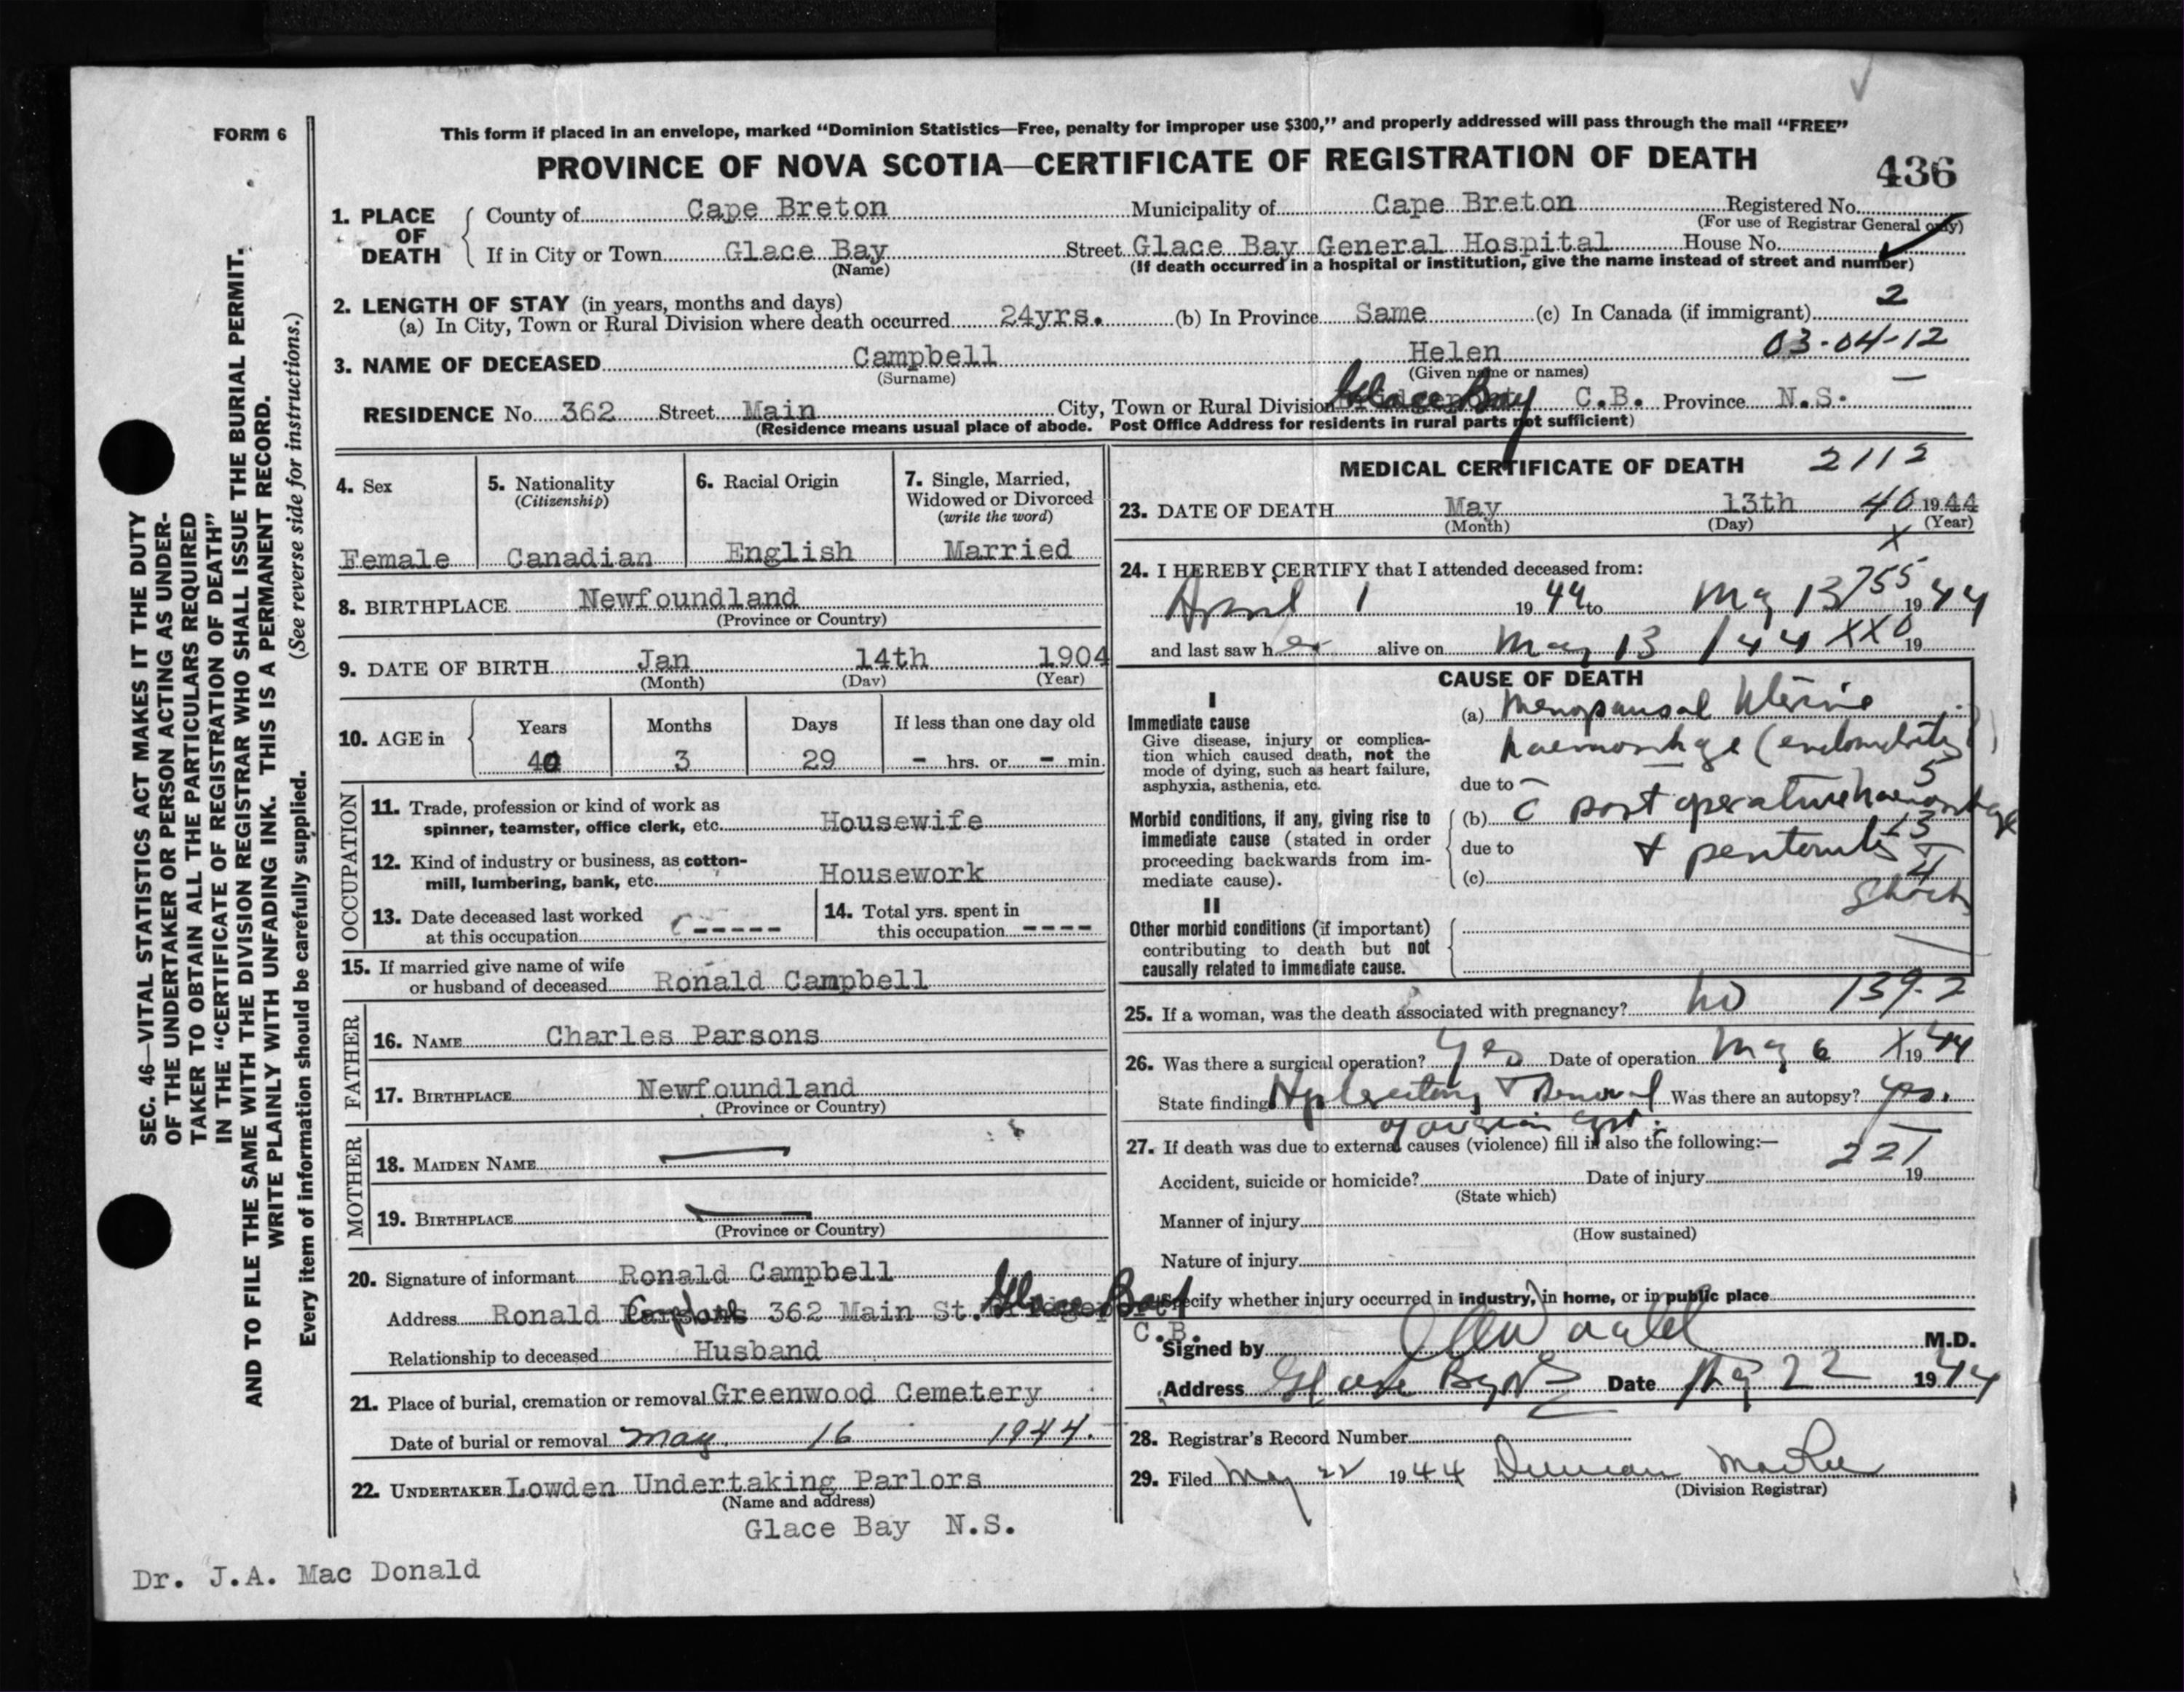 FORM 6
This form if placed in an envelope, marked "Dominion Statistics—Free, penalty for improper use $300," and properly addressed will pass through the mail "FREE"
PROVINCE OF NOVA SCOTIA—CERTIFICATE OF REGISTRATION OF DEATH
436
1. PLACE OF DEATH
County of Cape Breton Municipality of Cape Breton Registered No.
(For use of Registrar General only)
If in City or Town Glace Bay Street Glace Bay General Hospital House No.
(Name) (If death occurred in a hospital or institution, give the name instead of street and number)
2. LENGTH OF STAY (in years, months and days) 2
(a) In City, Town or Rural Division where death occurred 24yrs. (b) In Province Same (c) In Canada (if immigrant)
3. NAME OF DECEASED Campbell Helen 03-04-12
(Surname) (Given name or names)
RESIDENCE No. 362 Street Main City, Town or Rural Division Glace Bay C.B. Province N.S.
(Residence means usual place of abode. Post Office Address for residents in rural parts not sufficient)
4. Sex
Female
5. Nationality
(Citizenship)
Canadian
6. Racial Origin
English
7. Single, Married,
Widowed or Divorced
(write the word)
Married
8. BIRTHPLACE Newfoundland
(Province or Country)
9. DATE OF BIRTH Jan 14th 1904
(Month) (Day) (Year)
10. AGE in
Years Months Days If less than one day old
40 3 29 - hrs. or - min.
OCCUPATION
11. Trade, profession or kind of work as
spinner, teamster, office clerk, etc. Housewife
12. Kind of industry or business, as cotton-
mill, lumbering, bank, etc. Housework
13. Date deceased last worked
at this occupation -----
14. Total yrs. spent in
this occupation ----
15. If married give name of wife
or husband of deceased Ronald Campbell
FATHER
16. NAME Charles Parsons
17. BIRTHPLACE Newfoundland
(Province or Country)
MOTHER
18. MAIDEN NAME —
19. BIRTHPLACE —
(Province or Country)
20. Signature of informant Ronald Campbell
Address Ronald Campbell 362 Main St. Glace Bay
C.B.
Relationship to deceased Husband
21. Place of burial, cremation or removal Greenwood Cemetery
Date of burial or removal May 16 1944.
22. UNDERTAKER Lowden Undertaking Parlors
(Name and address)
Glace Bay N.S.
Dr. J.A. Mac Donald
MEDICAL CERTIFICATE OF DEATH 2112
23. DATE OF DEATH May 13th 40 1944
(Month) (Day) (Year)
X
24. I HEREBY CERTIFY that I attended deceased from:
April 1 1944 to May 13 755 1944
and last saw her alive on May 13 / 44 XX0 19
CAUSE OF DEATH
I
Immediate cause
Give disease, injury or complica-
tion which caused death, not the
mode of dying, such as heart failure,
asphyxia, asthenia, etc.
(a) Menopausal Uterine
haemorrhage (endometritis)
due to
Morbid conditions, if any, giving rise to
immediate cause (stated in order
proceeding backwards from im-
mediate cause).
(b) c̄ post operative haemorrhage
due to + peritonitis
(c)
Shock
II
Other morbid conditions (if important)
contributing to death but not
causally related to immediate cause.
25. If a woman, was the death associated with pregnancy? No 139-2
26. Was there a surgical operation? Yes Date of operation May 6 X 1944
State finding Hysterectomy + Removal Was there an autopsy? Yes.
of ovarian cyst.
27. If death was due to external causes (violence) fill in also the following:— 221
Accident, suicide or homicide? Date of injury 19
(State which)
Manner of injury
(How sustained)
Nature of injury
Specify whether injury occurred in industry, in home, or in public place
Signed by M.D.
Address Glace Bay NS Date May 22 1944
28. Registrar's Record Number
29. Filed May 22 1944 Duncan MacRae
(Division Registrar)
SEC. 46—VITAL STATISTICS ACT MAKES IT THE DUTY
OF THE UNDERTAKER OR PERSON ACTING AS UNDER-
TAKER TO OBTAIN ALL THE PARTICULARS REQUIRED
IN THE "CERTIFICATE OF REGISTRATION OF DEATH"
AND TO FILE THE SAME WITH THE DIVISION REGISTRAR WHO SHALL ISSUE THE BURIAL PERMIT.
WRITE PLAINLY WITH UNFADING INK. THIS IS A PERMANENT RECORD.
Every item of information should be carefully supplied. (See reverse side for instructions.)